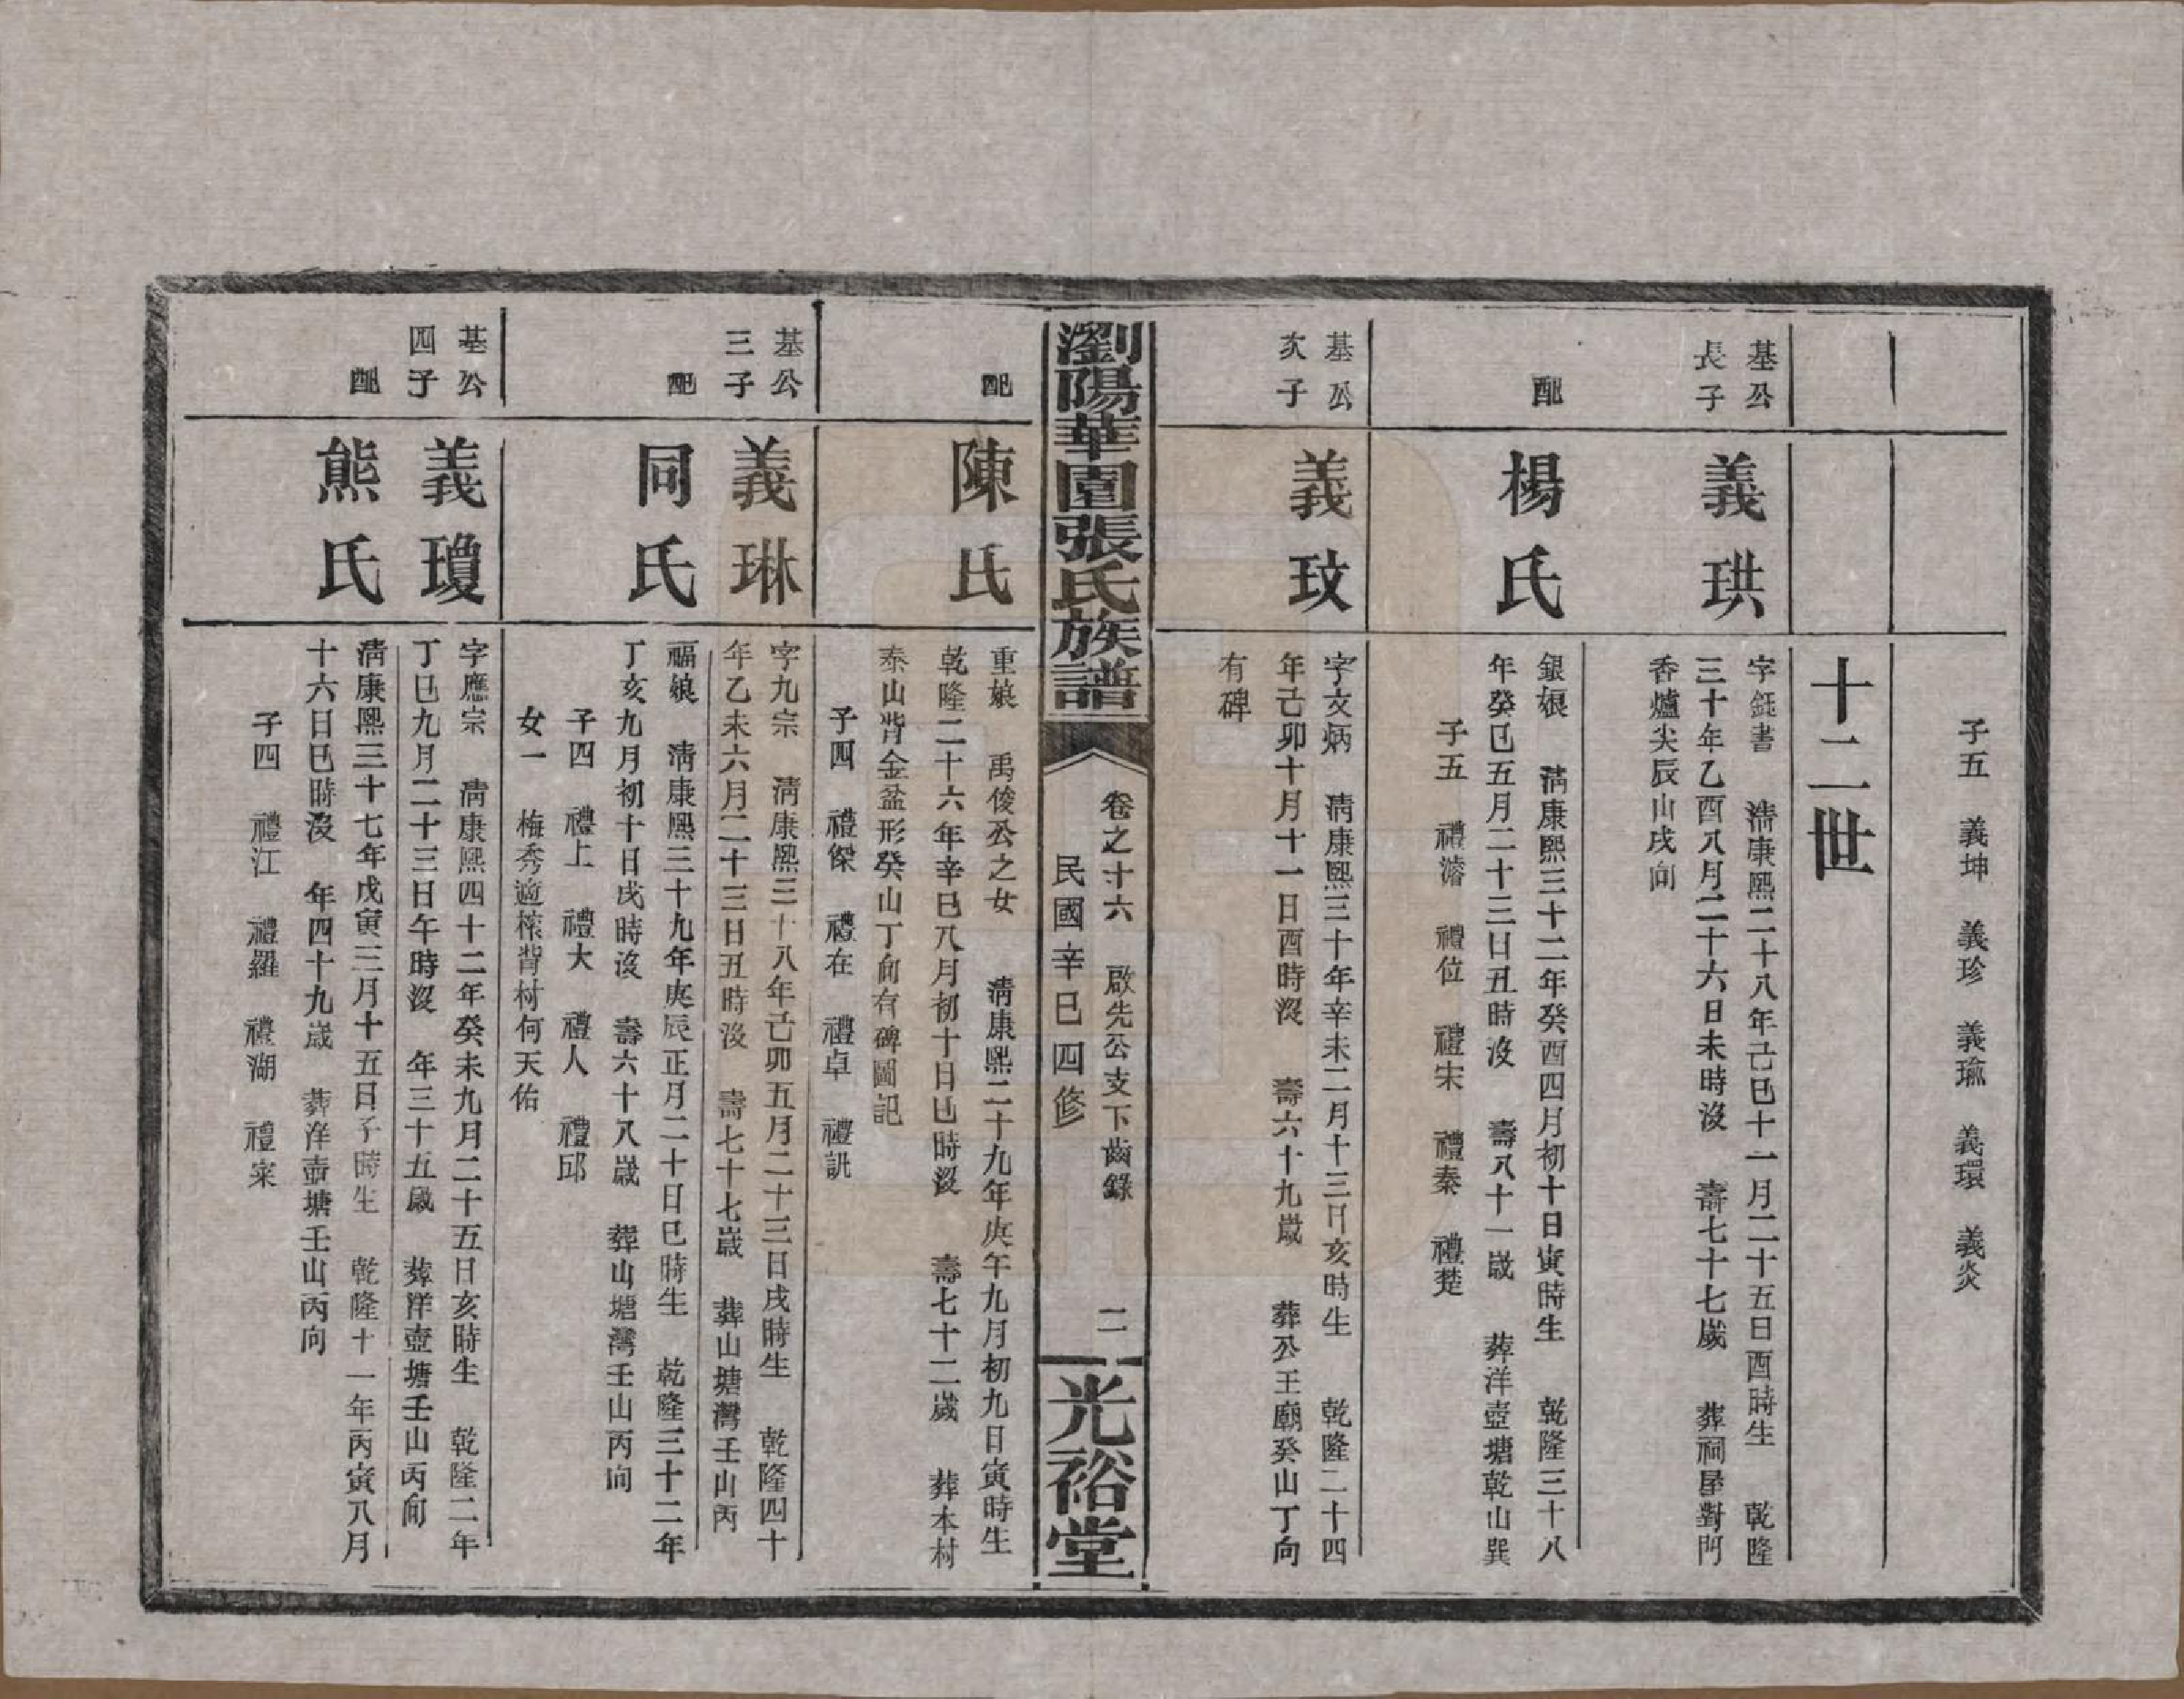 子五　義坤　義珍　義瑜　義環　義炎
十二世
基公
長子
義珙
字鈺書　清康熙二十八年己巳十一月二十五日酉時生　乾隆
三十年乙酉八月二十六日未時沒　壽七十七歲　葬祠屋對門
香爐尖辰山戌向
配
楊氏
銀娘　清康熙三十二年癸酉四月初十日寅時生　乾隆三十八
年癸巳五月二十三日丑時沒　壽八十一歲　葬洋壺塘乾山巽
子五　禮濬　禮位　禮宋　禮秦　禮楚
基公
次子
義玟
字文炳　清康熙三十年辛未二月十三日亥時生　乾隆二十四
年己卯十月十一日酉時沒　壽六十九歲　葬公王廟癸山丁向
有碑
瀏陽華園張氏族譜
卷之十六　啟先公支下齒錄　二
民國辛巳四修
光裕堂
配
陳氏
重娘　禹俊公之女　清康熙二十九年庚午九月初九日寅時生
乾隆二十六年辛巳八月初十日巳時沒　壽七十二歲　葬本村
泰山背金盆形癸山丁向有碑圖記
子四　禮傑　禮在　禮卓　禮誂
基公
三子
義琳
字九宗　清康熙三十八年己卯五月二十三日戌時生　乾隆四十
年乙未六月二十三日丑時沒　壽七十七歲　葬山塘灣壬山丙
配
同氏
福娘　清康熙三十九年庚辰正月二十日巳時生　乾隆三十二年
丁亥九月初十日戌時沒　壽六十八歲　葬山塘灣壬山丙向
子四　禮上　禮大　禮人　禮邱
女一　梅秀適檺背村何天佑
基公
四子
義瓊
字應宗　清康熙四十二年癸未九月二十五日亥時生　乾隆二年
丁巳九月二十三日午時沒　年三十五歲　葬洋壺塘壬山丙向
配
熊氏
清康熙三十七年戊寅三月十五日子時生　乾隆十一年丙寅八月
十六日巳時沒　年四十九歲　葬洋壺塘壬山丙向
子四　禮江　禮羅　禮湖　禮寀